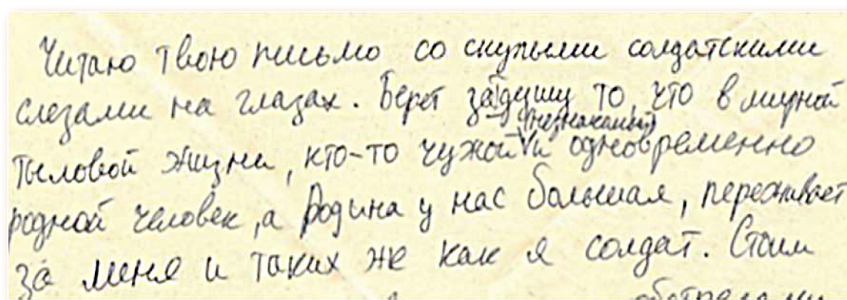 Читаю твою письмо со скупыми солдатскими
слезами на глазах. Берёт за душу то, что в мирной
тыловой жизни, кто-то чужой (незнакомый) и одновременно
родной человек, а Родина у нас большая, переживает
за меня и таких же как я солдат. Стоим
обстрелами